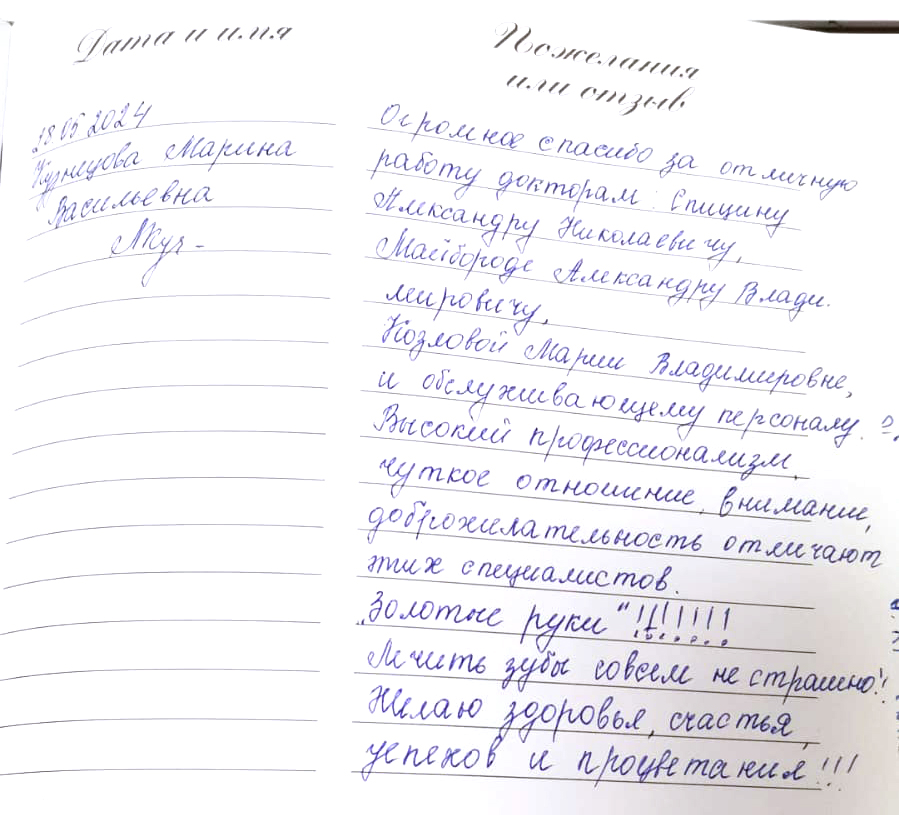 Дата и имя
28.05 2024
Кузнецова Марина
Васильевна
Пожелания
или отзыв
Огромное спасибо за отличную
работу докторам: Спицину
Александру Николаевичу,
Майбороде Александру Влади-
мировичу,
Козловой Марии Владимировне,
и обслуживающему персоналу.
Высокий профессионализм,
чуткое отношение, внимание,
доброжелательность отличают
этих специалистов.
„Золотые руки“ !!!!!!!!
Лечить зубы совсем не страшно!!
Желаю здоровья, счастья,
успехов и процветания!!!